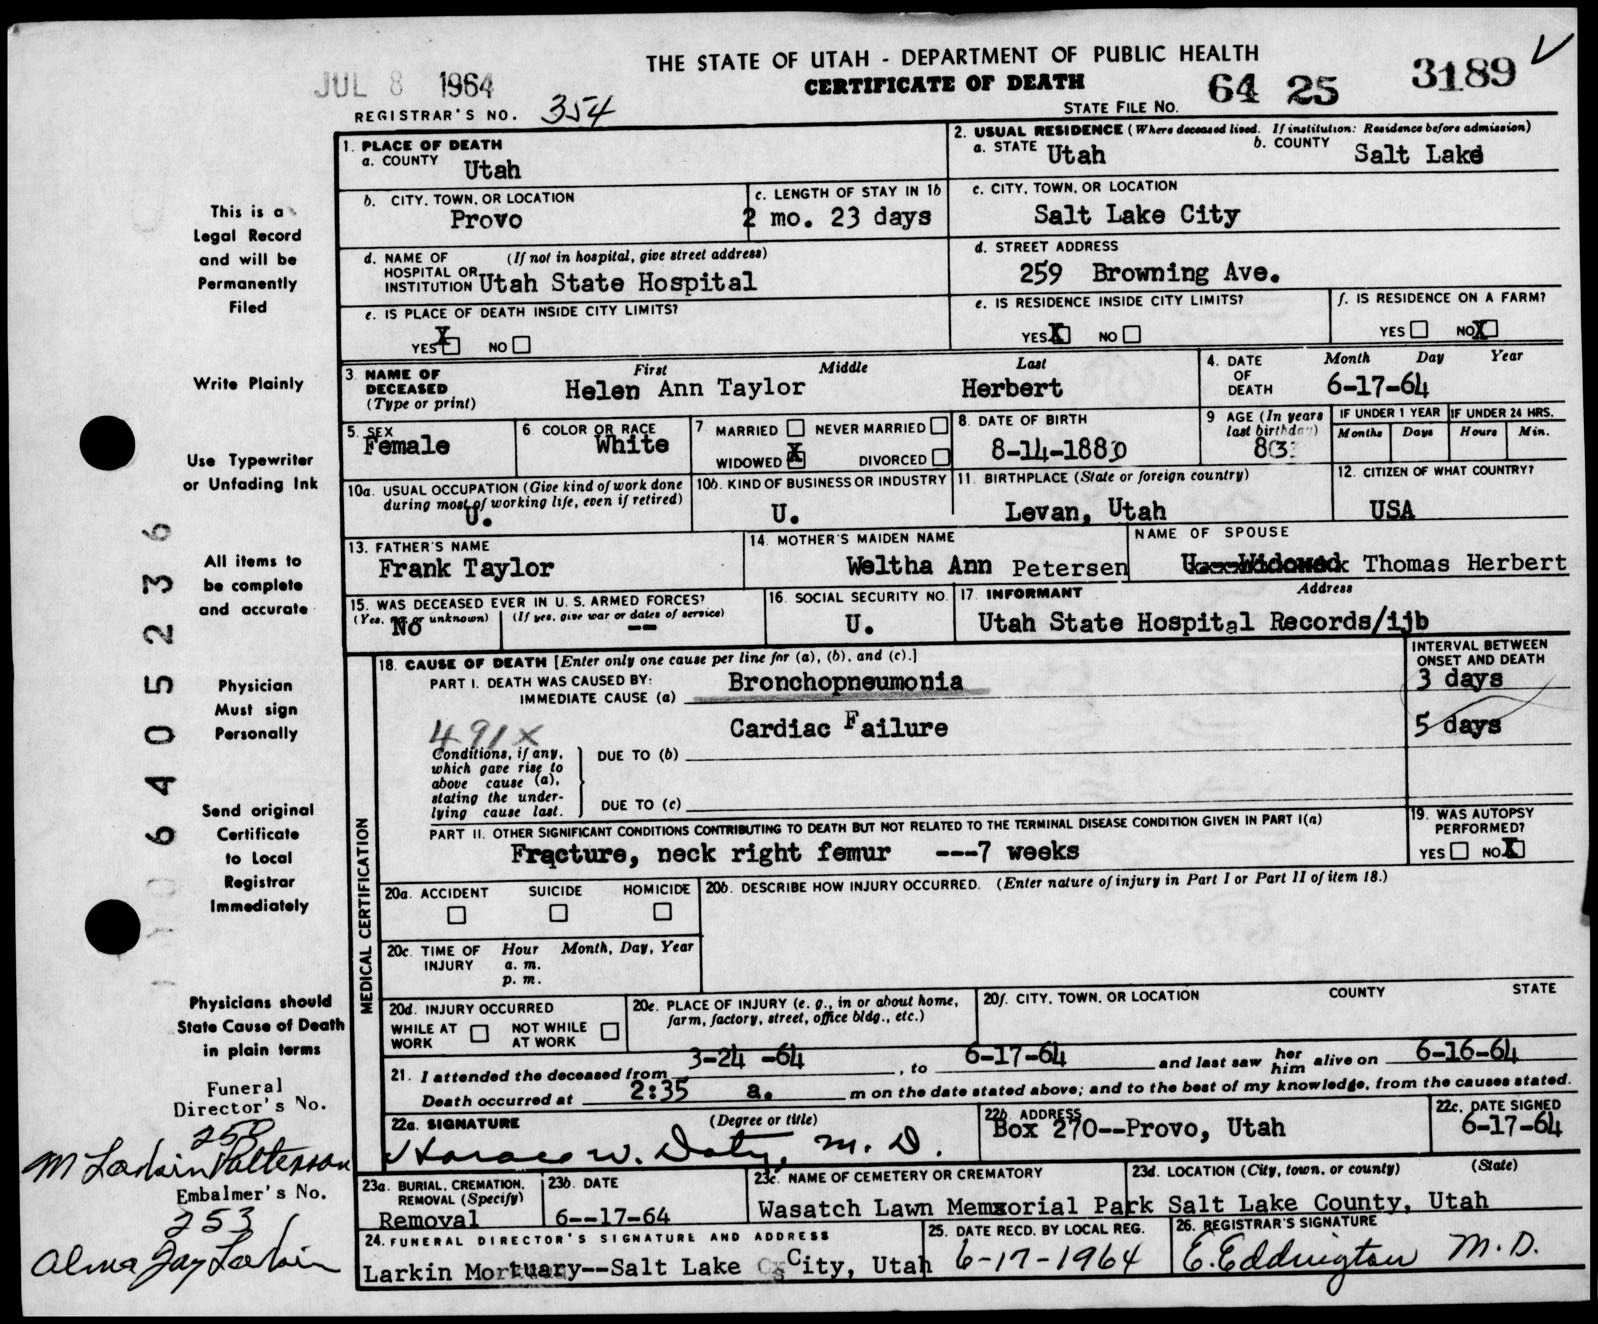 THE STATE OF UTAH - DEPARTMENT OF PUBLIC HEALTH
JUL 8 1964
CERTIFICATE OF DEATH
64 25 3189
REGISTRAR'S NO. 354
STATE FILE NO.
1. PLACE OF DEATH
a. COUNTY Utah
2. USUAL RESIDENCE (Where deceased lived. If institution: Residence before admission)
a. STATE Utah b. COUNTY Salt Lake
b. CITY, TOWN, OR LOCATION
Provo
c. LENGTH OF STAY IN 1b
2 mo. 23 days
c. CITY, TOWN, OR LOCATION
Salt Lake City
d. NAME OF HOSPITAL OR INSTITUTION (If not in hospital, give street address)
Utah State Hospital
d. STREET ADDRESS
259 Browning Ave.
e. IS PLACE OF DEATH INSIDE CITY LIMITS?
YES X NO
e. IS RESIDENCE INSIDE CITY LIMITS?
YES X NO
f. IS RESIDENCE ON A FARM?
YES NO X
3. NAME OF DECEASED (Type or print)
First Middle Last
Helen Ann Taylor Herbert
4. DATE OF DEATH
Month Day Year
6-17-64
5. SEX
Female
6. COLOR OR RACE
White
7. MARRIED NEVER MARRIED
WIDOWED X DIVORCED
8. DATE OF BIRTH
8-14-1880
9 AGE (In years last birthday)
83
IF UNDER 1 YEAR
Months Days
IF UNDER 24 HRS.
Hours Min.
10a. USUAL OCCUPATION (Give kind of work done during most of working life, even if retired)
U.
10b. KIND OF BUSINESS OR INDUSTRY
U.
11. BIRTHPLACE (State or foreign country)
Levan, Utah
12. CITIZEN OF WHAT COUNTRY?
USA
13. FATHER'S NAME
Frank Taylor
14. MOTHER'S MAIDEN NAME
Weltha Ann Petersen
NAME OF SPOUSE
Thomas Herbert
15. WAS DECEASED EVER IN U. S. ARMED FORCES?
(Yes, no or unknown) (If yes, give war or dates of service)
No --
16. SOCIAL SECURITY NO.
U.
17. INFORMANT Address
Utah State Hospital Records/ijb
18. CAUSE OF DEATH [Enter only one cause per line for (a), (b), and (c).]
INTERVAL BETWEEN ONSET AND DEATH
PART I. DEATH WAS CAUSED BY:
IMMEDIATE CAUSE (a) Bronchopneumonia 3 days
491X
Cardiac Failure 5 days
Conditions, if any, which gave rise to above cause (a), stating the underlying cause last.
DUE TO (b)
DUE TO (c)
PART II. OTHER SIGNIFICANT CONDITIONS CONTRIBUTING TO DEATH BUT NOT RELATED TO THE TERMINAL DISEASE CONDITION GIVEN IN PART I(a)
Fracture, neck right femur ---7 weeks
19. WAS AUTOPSY PERFORMED?
YES NO X
MEDICAL CERTIFICATION
20a. ACCIDENT SUICIDE HOMICIDE
20b. DESCRIBE HOW INJURY OCCURRED. (Enter nature of injury in Part I or Part II of item 18.)
20c. TIME OF INJURY Hour Month, Day, Year
a. m.
p. m.
20d. INJURY OCCURRED
WHILE AT WORK NOT WHILE AT WORK
20e. PLACE OF INJURY (e. g., in or about home, farm, factory, street, office bldg., etc.)
20f. CITY, TOWN, OR LOCATION COUNTY STATE
21. I attended the deceased from 3-24 -64, to 6-17-64 and last saw her him alive on 6-16-64
Death occurred at 2:35 a. m on the date stated above; and to the best of my knowledge, from the causes stated.
22a. SIGNATURE (Degree or title)
Horace W. Doty, M. D.
22b. ADDRESS
Box 270--Provo, Utah
22c. DATE SIGNED
6-17-64
23a. BURIAL, CREMATION, REMOVAL (Specify)
Removal
23b. DATE
6--17-64
23c. NAME OF CEMETERY OR CREMATORY
Wasatch Lawn Memorial Park
23d. LOCATION (City, town, or county) (State)
Salt Lake County, Utah
24. FUNERAL DIRECTOR'S SIGNATURE AND ADDRESS
Larkin Mortuary--Salt Lake City, Utah
25. DATE RECD. BY LOCAL REG.
6-17-1964
26. REGISTRAR'S SIGNATURE
E. Eddington M. D.
This is a
Legal Record
and will be
Permanently
Filed
Write Plainly
Use Typewriter
or Unfading Ink
All items to
be complete
and accurate
Physician
Must sign
Personally
Send original
Certificate
to Local
Registrar
Immediately
Physicians should
State Cause of Death
in plain terms
Funeral
Director's No.
250
M Larkin Patterson
Embalmer's No.
253
Alma Jay Larkin
6405236